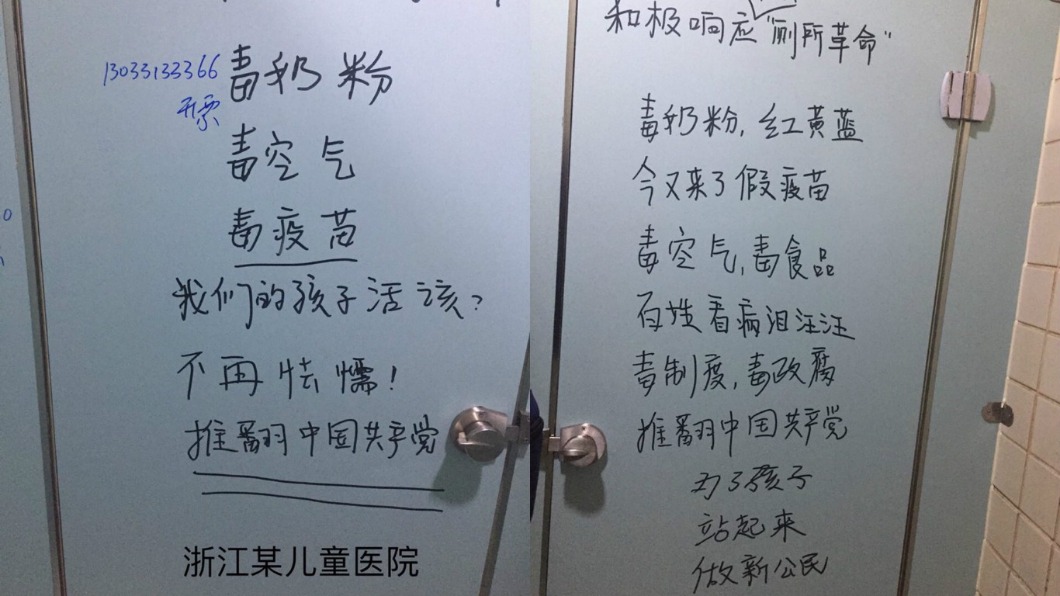 13033133366
开票
毒奶粉
毒空气
毒疫苗
我们的孩子活该？
不再怯懦！
推翻中国共产党
浙江某儿童医院
和极响应"厕所革命"
毒奶粉，红黄蓝
今又来了假疫苗
毒空气，毒食品
百姓看病泪汪汪
毒制度，毒政腐
推翻中国共产党
为了孩子
站起来
做新公民